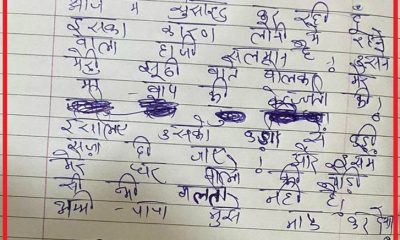 आज मैं सुसाइड कर रही हूँ
इसका कारण लोनी में रहने
वाला हाजी सलमान है! उसने
मेरी झूठी बात बोलकर मेरे
माँ-बाप की बेज्जती की!
इसलिए उसको कड़ी से कड़ी
सज़ा दी जाए! और इसमें
मेरे घर वालो की थोड़ी
सी भी गलती नही है।
मम्मी-पापा मुझे माफ कर देना